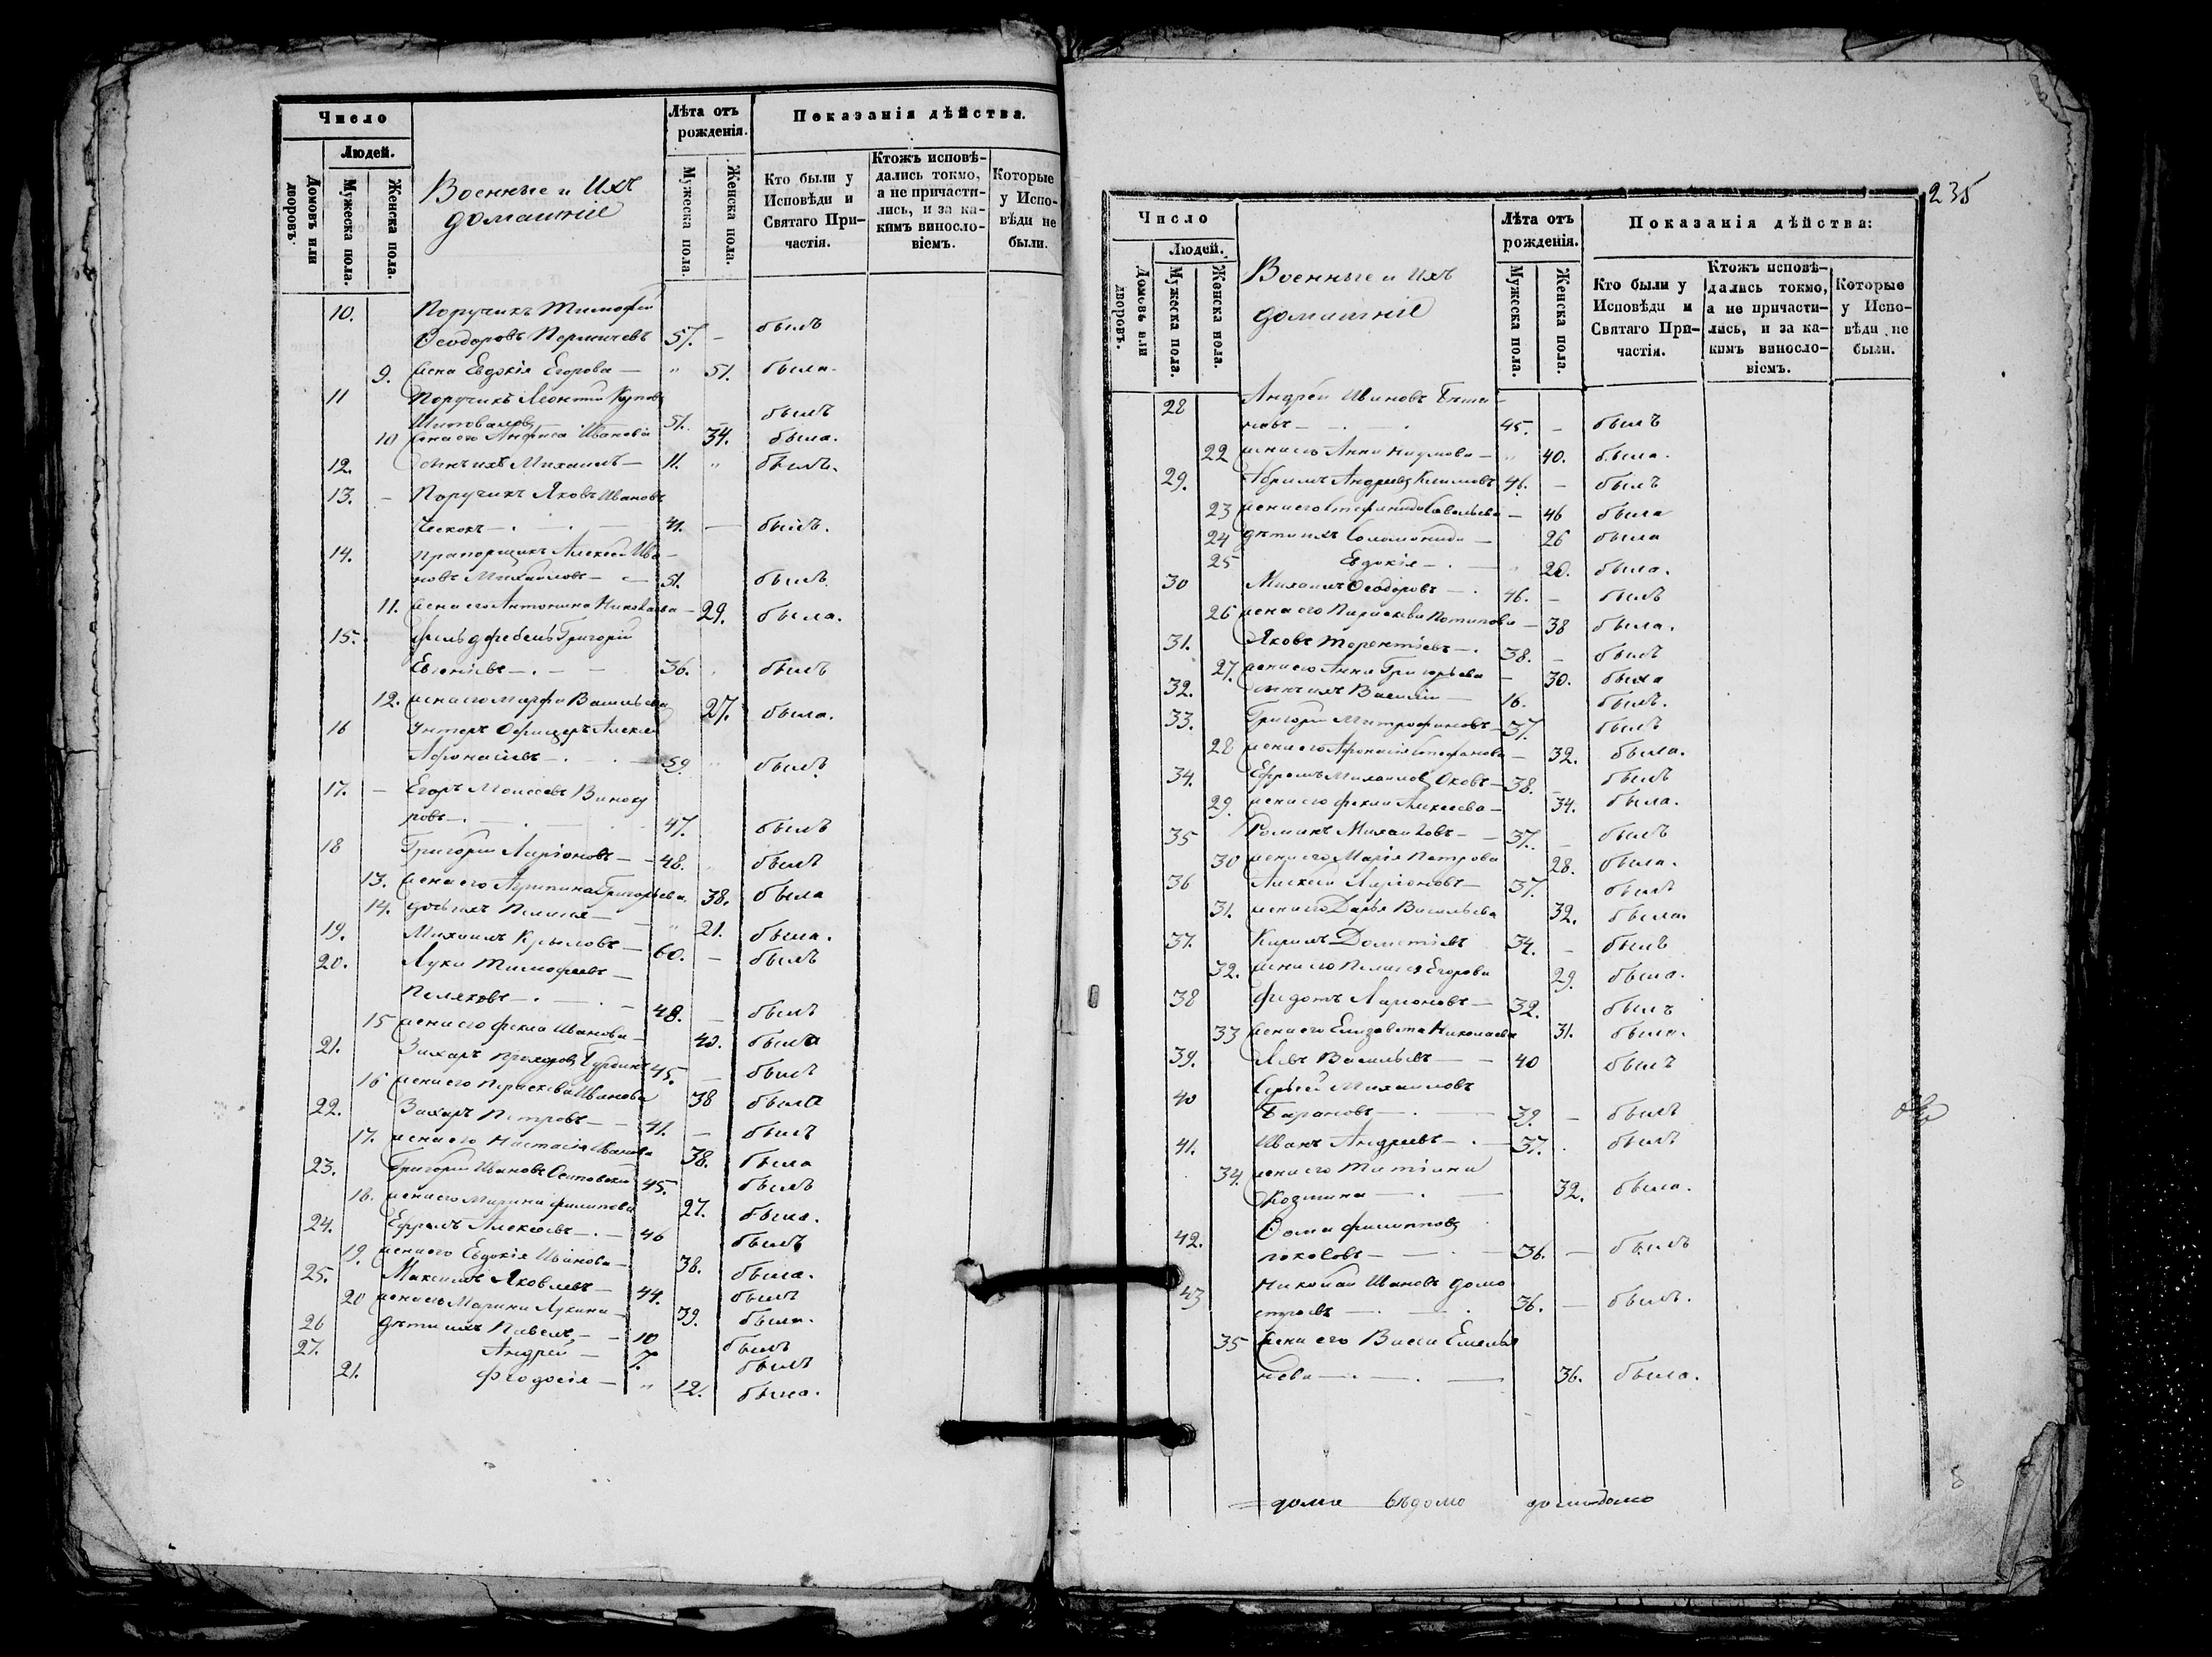 Число
Людей.
Домовъ или дворовъ.
Мужеска пола.
Женска пола.
Военные и Ихъ
домашніе
Лѣта отъ рожденія.
Мужеска пола.
Женска пола.
Показанія дѣйства.
Кто были у Исповѣди и Святаго При-частія.
Ктожъ исповѣ-дались токмо, а не причасти-лись, и за ка-кимъ винословіемъ.
Которые у Испо-вѣди не были.
10. Поручикъ Тимофей
Ѳеодоровъ 57. – былъ
9. жена Евдокія Егорова – " 51. была.
11 Поручикъ Леонтій
51. – былъ
10 жена его Иванова 34. была.
12. сынъ ихъ Михаилъ – 11. " былъ.
13. – Поручикъ Яковъ Ивановъ
41. – былъ.
14. Прапорщикъ Алексей Ива-
новъ Михайловъ – 51. былъ.
11. жена его Антонина Николаева – 29. была.
15. фельдфебель Григорій
36. былъ
12. жена его Марфа Васильева 27. была.
16 Унтеръ Офицеръ Алексей
Афонасіевъ – 59. " былъ.
17. – Егоръ Моисеевъ Виноку
ровъ – 47. былъ
18 Григорій Ларіоновъ – 48. былъ
13. жена его Григорьева 38. была
14. дочь ихъ Пелагея – " 21. была.
19. Михаилъ Крыловъ – 60. – былъ
20. Лука Тимофеевъ –
Поляковъ – 48. – былъ
15 жена его Фекла Иванова – 40. была
21. Захаръ Прохоровъ 45. – былъ
16 жена его Параскева Иванова 38 была
22. Захаръ Петровъ – 41. – былъ
17. жена его Настасія Иванова 38. была
23. Григорій Ивановъ 45. былъ
18. жена его Марина Филипова 27. была.
24. Ефремъ Алексеевъ – 46 былъ
19. жена его Евдокія Иванова – 38. была.
25. Максимъ Яковлевъ – 44. былъ
20 жена его Марина Лукина – 39. была.
26 дѣти ихъ Павелъ – 10 былъ
27. Андрей – 7. былъ
21. Феодосія – " 12. была.
235
Число
Людей.
Домовъ или дворовъ.
Мужеска пола.
Женска пола.
Военные и Ихъ
домашніе
Лѣта отъ рожденія.
Мужеска пола.
Женска пола.
Показанія дѣйства:
Кто были у Исповѣди и Святаго При-частія.
Ктожъ исповѣ-дались токмо, а не причасти-лись, и за ка-кимъ винословіемъ.
Которые у Испо-вѣди не были.
28 Андрей Ивановъ
новъ – 45. – былъ
22 жена его Анна Наумова – " 40. была.
29. Абрамъ Андреевъ Климовъ 46. – былъ
23 жена его Стефанида Савельева – 46 была
24 дѣти ихъ Соломонида – 26 была
25 Евдокія – 20. была.
30 Михаилъ Ѳеодоровъ – 46. – былъ
26 жена его Параскева Потапова – 38 была.
31. Яковъ Терентіевъ – 38. – былъ
27. жена его Анна Григорьева – 30. была
32. сынъ ихъ Василій – 16. былъ.
33. Григорій Митрофановъ – 37. былъ
28 жена его Афонасія Стефанова – 32. была.
34. Ефремъ Михаиловъ – 38. – былъ
29. жена его Фекла Алексеева – 34. была.
35 Романъ Михайловъ – 37. – былъ
30 жена его Марія Петрова 28. была.
36 Алексей Ларіоновъ – 37. былъ
31. жена его Дарья Васильева 32. была.
37. Кирилъ Дометіевъ 34. – былъ
32. жена его Пелагея Егорова 29. была.
38 Федотъ Ларіоновъ – 32. былъ
33 жена его Елизавета Николаева 31. была.
39. Левъ Васильевъ – 40 былъ
40 Сергей Михаиловъ
Барановъ – 39. – былъ
41. Иванъ Андреевъ – 37. былъ
34. жена его Татіана
Козмина – 32. была.
42. Ѳома Филипповъ
36. – былъ
43 Николай Ивановъ
36. – былъ.
35 жена его Васса Емелья
нова – 36. была.